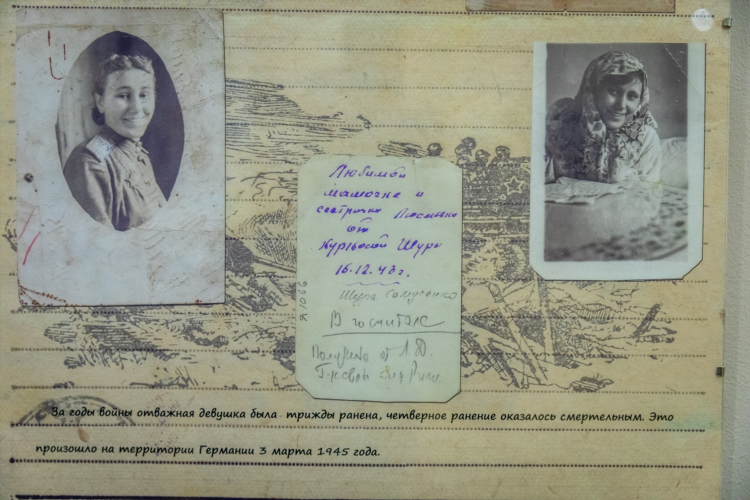 Любимой
мамочке и
сестричке Люсеньке
от
Курносой Шуры
16.12.43 г.
Шура
В госпитале
Получено от Л.Д.
Я 1066
За годы войны отважная девушка была трижды ранена, четверное ранение оказалось смертельным. Это
произошло на территории Германии 3 марта 1945 года.